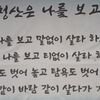 청산은 나를 보고
나를 보고 말없이 살라 하
나를 보고 티없이 살라 하
도 벗어 놓고 탐욕도 벗어
같이 바람 같이 살다가